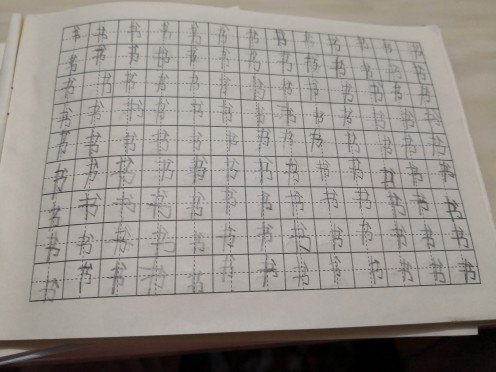 书书书书书书书书书书书书书
书书书书书书书书书书书书书
书书书书书书书书书书书书书
书书书书书书书书书书书书书
书书书书书书书书书书书书书
书书书书书书书书书书书书书
书书书书书书书书书书书书书
书书书书书书书书书书书书书
书书书书书书书书书书书书书